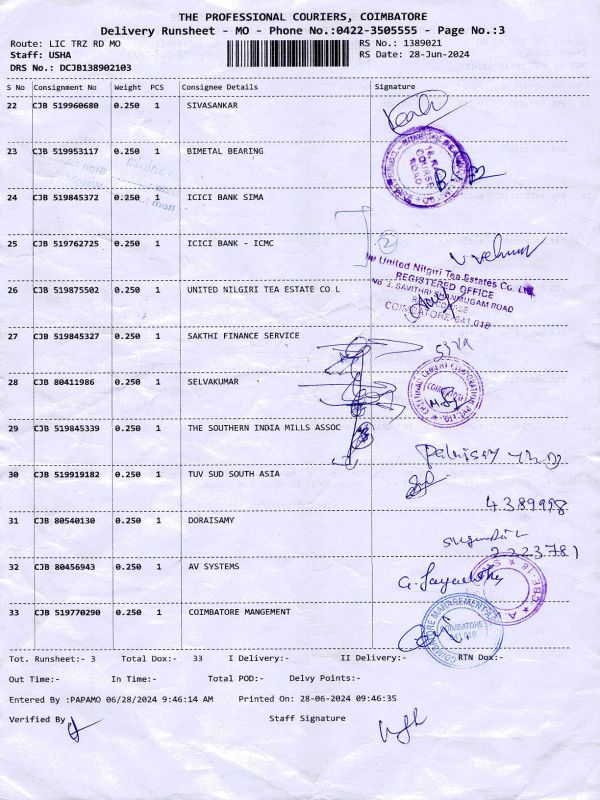 THE PROFESSIONAL COURIERS, COIMBATORE
Delivery Runsheet - MO - Phone No.:0422-3505555 - Page No.:3
Route: LIC TRZ RD MO RS No.: 1389021
Staff: USHA RS Date: 28-Jun-2024
DRS No.: DCJB138902103
S No Consignment No Weight PCS Consignee Details Signature
22 CJB 519960680 0.250 1 SIVASANKAR
23 CJB 519953117 0.250 1 BIMETAL BEARING
24 CJB 519845372 0.250 1 ICICI BANK SIMA
25 CJB 519762725 0.250 1 ICICI BANK - ICMC
26 CJB 519875502 0.250 1 UNITED NILGIRI TEA ESTATE CO L
United Nilgiri Tea Estates Co. Ltd
REGISTERED OFFICE
No 3, SAVITHRI SHANMUGAM ROAD
RACE COURSE
COIMBATORE-641 018
27 CJB 519845327 0.250 1 SAKTHI FINANCE SERVICE
28 CJB 80411986 0.250 1 SELVAKUMAR
29 CJB 519845339 0.250 1 THE SOUTHERN INDIA MILLS ASSOC
30 CJB 519919182 0.250 1 TUV SUD SOUTH ASIA
4389998
31 CJB 80540130 0.250 1 DORAISAMY
2223781
32 CJB 80456943 0.250 1 AV SYSTEMS
33 CJB 519770290 0.250 1 COIMBATORE MANGEMENT
COIMBATORE
Tot. Runsheet:- 3 Total Dox:- 33 I Delivery:- II Delivery:- RTN Dox:-
Out Time:- In Time:- Total POD:- Delvy Points:-
Entered By :PAPAMO 06/28/2024 9:46:14 AM Printed On: 28-06-2024 09:46:35
Verified By Staff Signature